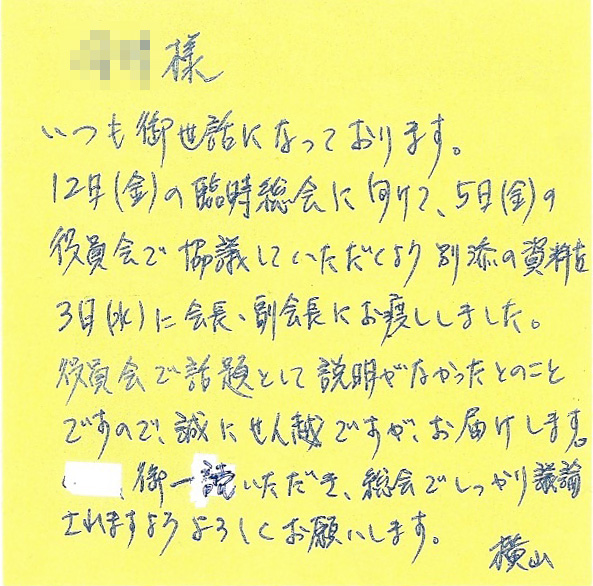 様
いつも御世話になっております。
12日(金)の臨時総会に向けて、5日(金)の
役員会で協議していただくよう別添の資料を
3日(水)に会長、副会長にお渡ししました。
役員会で話題として説明がなかったとのこと
ですので、誠にせん越ですが、お届けします。
御一読いただき、総会でしっかり議論
されますようよろしくお願いします。
横山